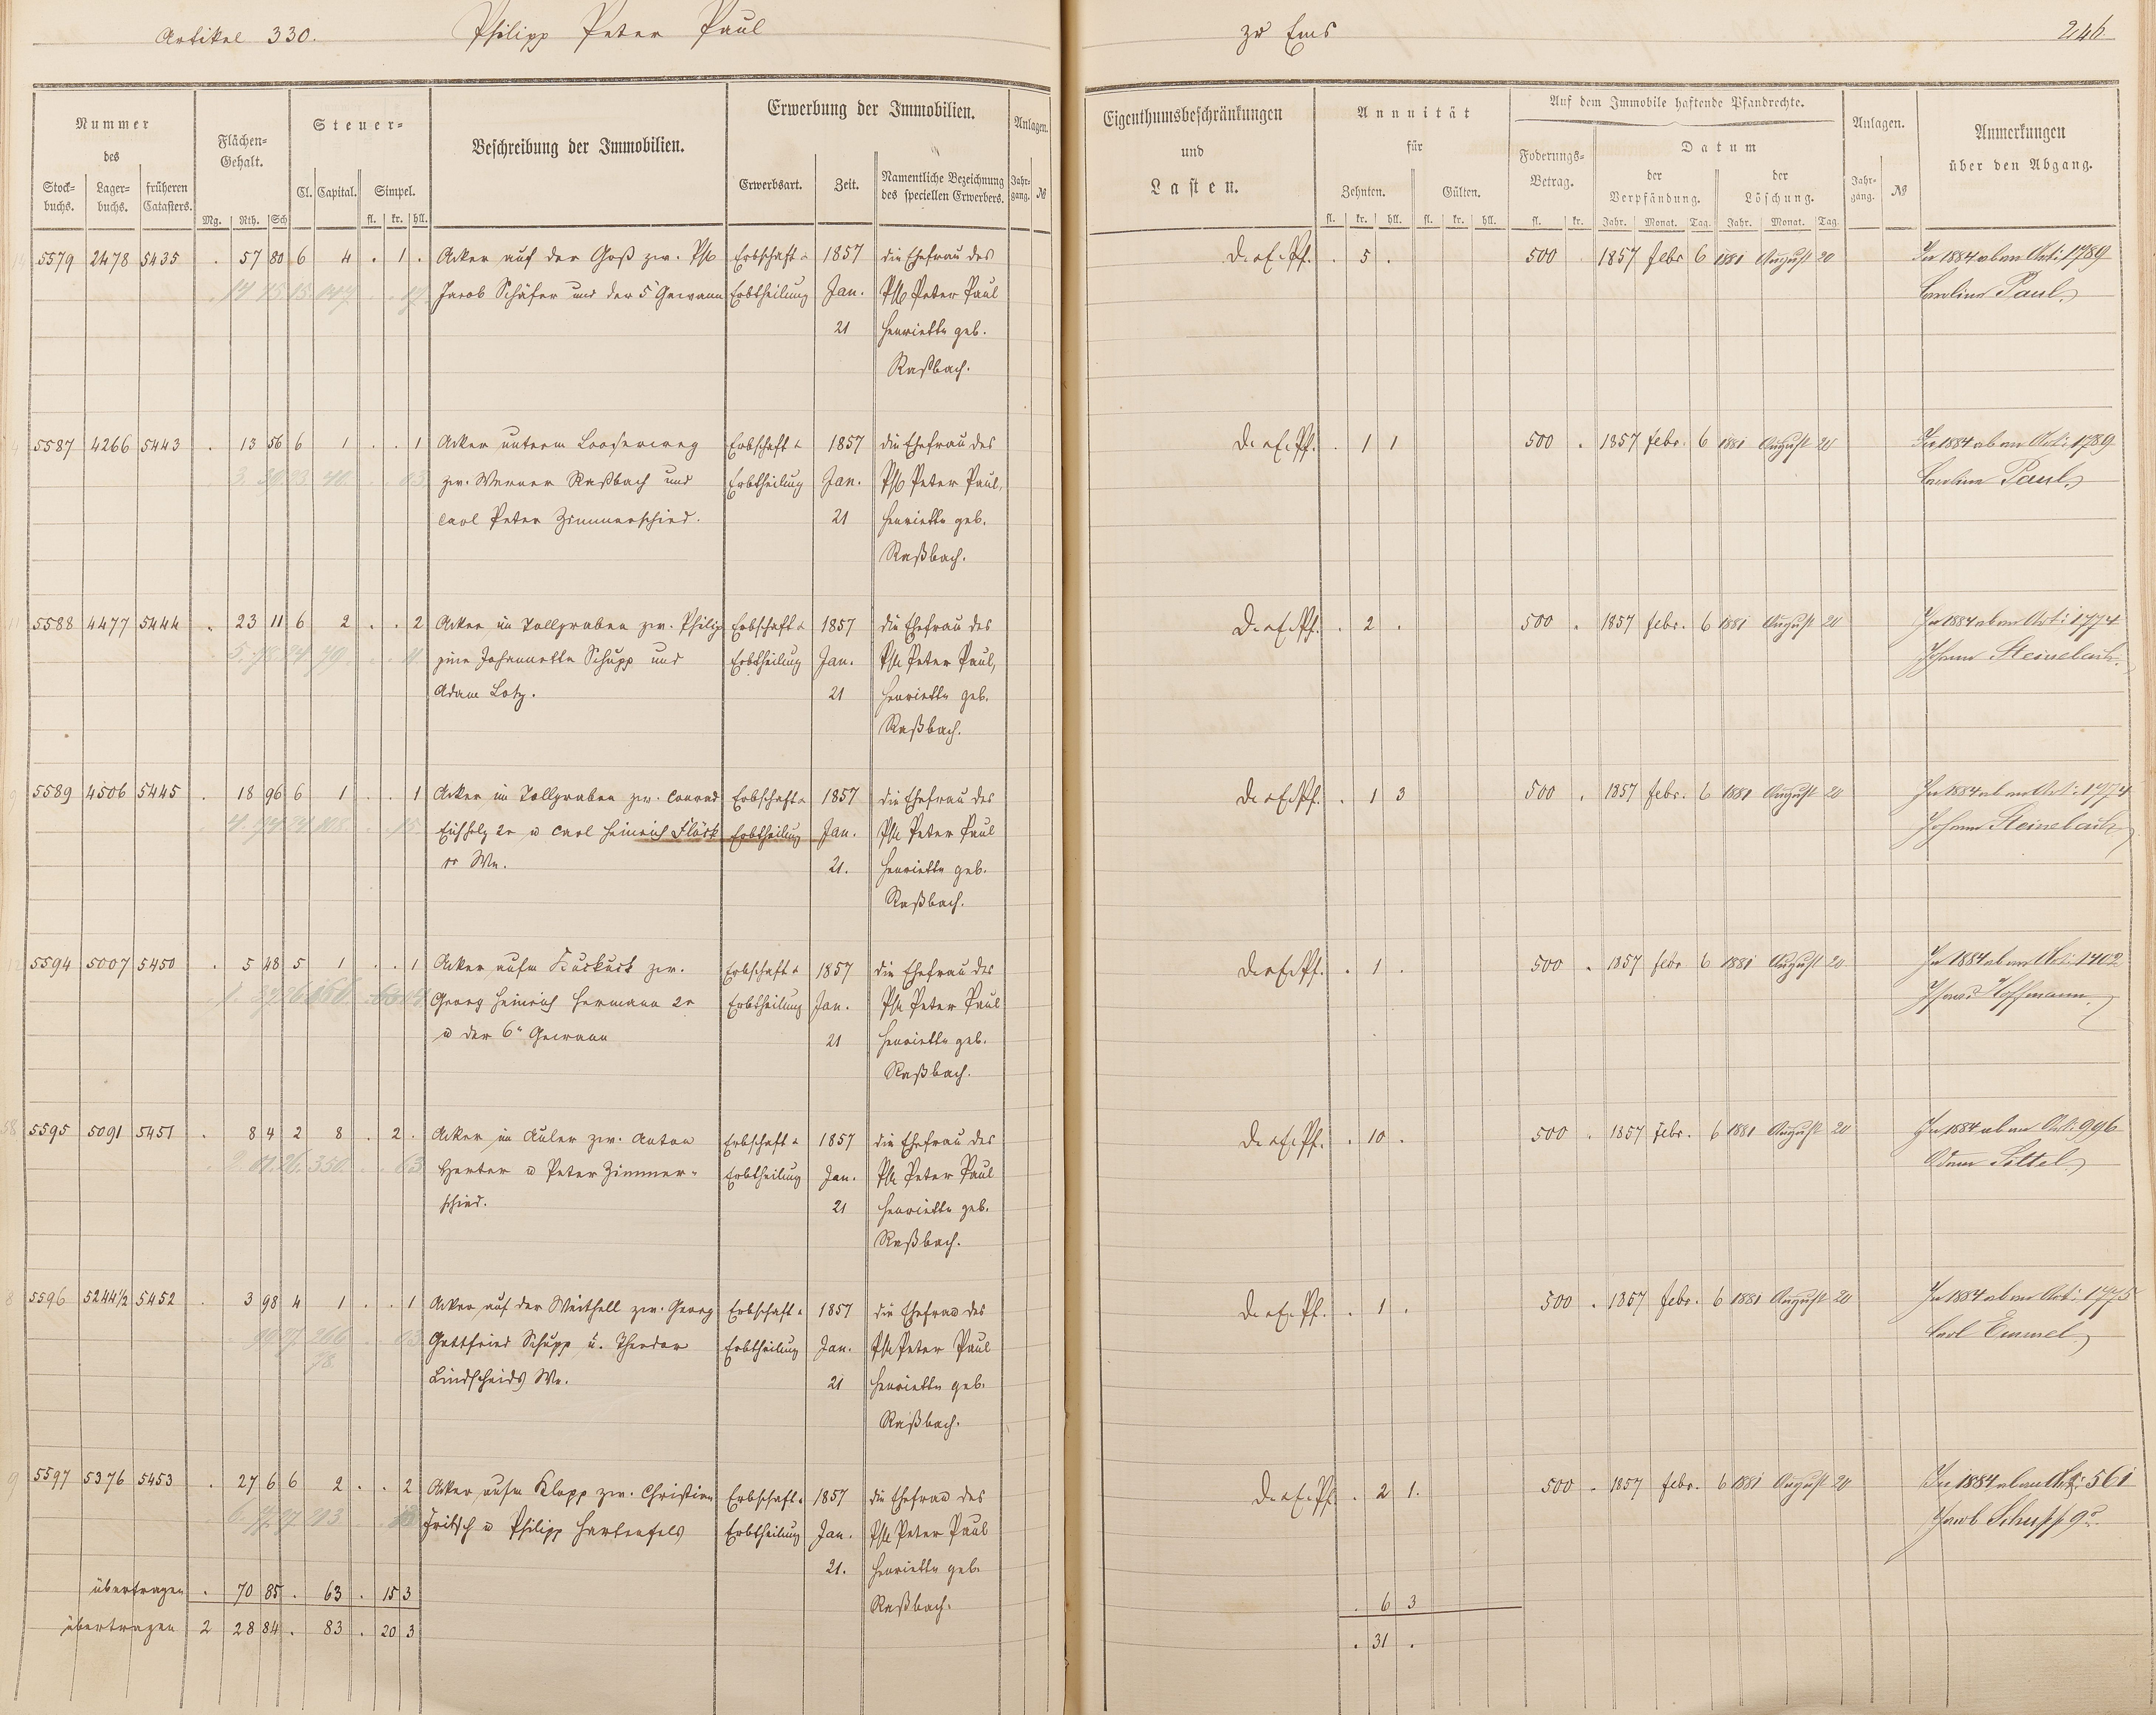 Artikel 330. Philipp Peter Paul zu Ems 246.
Nummer des
Stock-buchs. Lager-buchs. früheren Catasters.
Flächen-Gehalt.
Mg. Rth. Sch
Steuer-
Cl. Capital. Simpel.
fl. kr. hll.
Beschreibung der Immobilien.
Erwerbung der Immobilien.
Erwerbsart. Zeit. Namentliche Bezeichnung des speciellen Erwerbers.
Anlagen.
Jahr-gang. №
Eigenthumsbeschränkungen
und
Lasten.
Annuität
für
Zehnten. Gülten.
fl. kr. hll. fl. kr. hll.
Auf dem Immobile haftende Pfandrechte.
Foderungs-Betrag.
fl. kr.
Datum
der Verpfändung. der Löschung.
Jahr. Monat. Tag. Jahr. Monat. Tag.
Anlagen.
Jahr-gang. №
Anmerkungen
über den Abgang.
5579 2478 5435 . 57 80 6 4 . 1 . Acker auf der Goß zw. Phl Erbschaft & 1857 die Ehefrau des . 5 . 500 1857 Febr 6 1881 August 20 In 1884 ab an Art: 1789
Jacob Schäfer und der 5 Gewann Erbtheilung Jan. Phl Peter Paul Caroline Paul.
21 Henriette geb.
Raßbach.
5587 4266 5443 . 13 56 6 1 . . 1 Acker unterm Erbschaft & 1857 die Ehefrau des . 1 1 500 . 1857 Febr. 6 1881 August 20 In 1884 ab an Art: 1789
zw. Werner Raßbach und Erbtheilung Jan. Phl Peter Paul, Caroline Paul.
Carl Peter Zimmerschied. 21 Henriette geb.
Raßbach.
5588 4477 5444 . 23 11 6 2 . . 2 Acker im Tollgraben zw. Philip Erbschaft & 1857 die Ehefrau des . 2 . 500 . 1857 Febr. 6 1881 August 20 In 1884 ab an Art: 1774
Johannette Schupp und Erbtheilung Jan. Phl Peter Paul, Johann Steinebach.
Adam Lotz. 21 Henriette geb.
Raßbach.
5589 4506 5445 . 18 96 6 1 . . 1 Acker im Tollgraben zw. Conrad Erbschaft & 1857 die Ehefrau des . 1 3 500 . 1857 Febr. 6 1881 August 20 In 1884 ab an Art: 1774
Eichholz 2r u Carl Heinrich Flöck Erbtheilung Jan. Phl Peter Paul Johann Steinebach
Wn. 21. Henriette geb.
Raßbach.
5594 5007 5450 . 5 48 5 1 . . 1 Acker aufm Kuckuck zw. Erbschaft & 1857 die Ehefrau des . 1 . 500 . 1857 Febr 6 1881 August 20 In 1884 ab an Art: 1402
Georg Heinrich Hermann 2r Erbtheilung Jan. Phl Peter Paul Hoffmann
u der 6n Gewann 21 Henriette geb.
Raßbach.
5595 5091 5451 . 8 4 2 8 . 2 . Acker im Auler zw. Anton Erbschaft & 1857 die Ehefrau des . 10 . 500 . 1857 Febr. 6 1881 August 20 In 1884 ab an Art: 996
Herber u Peter Zimmer- Erbtheilung Jan. Phl Peter Paul Adam Sottel
schied. 21 Henriette geb.
Raßbach.
5596 5244½ 5452 . 3 98 4 1 . . 1 Acker auf der Weithell zw. Georg Erbschaft & 1857 die Ehefrau des . 1 . 500 . 1857 Febr. 6 1881 August 20 In 1884 ab an Art: 1775
Gottfried Schupp u. Theodor Erbtheilung Jan. Phl Peter Paul Carl Emmel
Lindscheids Wn. 21 Henriette geb.
Raßbach.
5597 5376 5453 . 27 6 6 2 . . 2 Acker aufm Klopp zw. Christian Erbschaft & 1857 die Ehefrau des . 2 1. 500 . 1857 Febr. 6 1881 August 20 In 1884 ab an Art: 561
Fritsch u Philipp Hartenfels Erbtheilung Jan. Phl Peter Paul Jacob Schupp 9r.
21. Henriette geb.
Raßbach.
übertragen . 70 85 . 63 . 15 3 . 6 3
übertragen 2 28 84 . 83 . 20 3 . 31 .